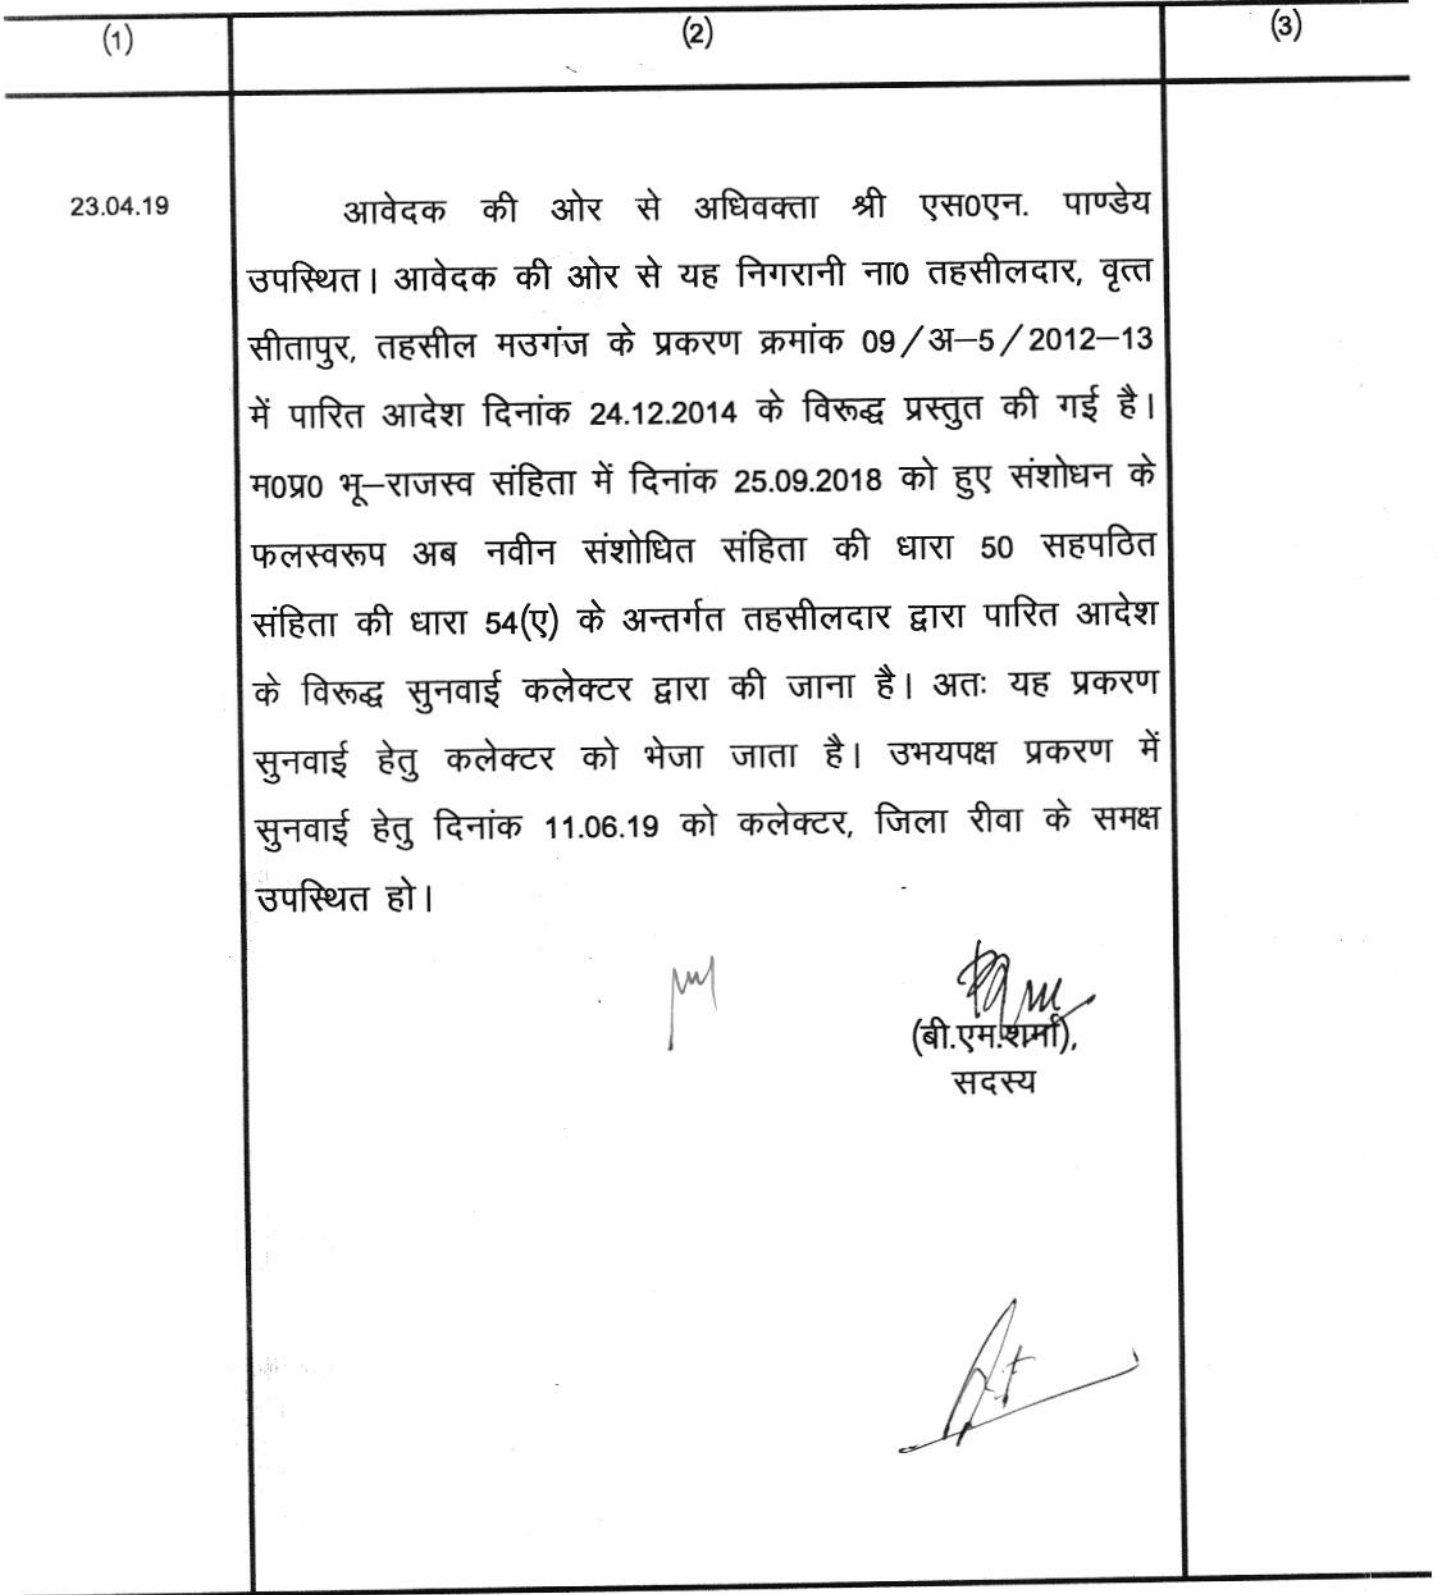 (1) (2) (3)
23.04.19 आवेदक की ओर से अधिवक्ता श्री एस0एन. पाण्डेय
उपस्थित। आवेदक की ओर से यह निगरानी ना0 तहसीलदार, वृत्त
सीतापुर, तहसील मउगंज के प्रकरण क्रमांक 09/अ–5/2012–13
में पारित आदेश दिनांक 24.12.2014 के विरूद्ध प्रस्तुत की गई है।
म0प्र0 भू–राजस्व संहिता में दिनांक 25.09.2018 को हुए संशोधन के
फलस्वरूप अब नवीन संशोधित संहिता की धारा 50 सहपठित
संहिता की धारा 54(ए) के अन्तर्गत तहसीलदार द्वारा पारित आदेश
के विरूद्ध सुनवाई कलेक्टर द्वारा की जाना है। अतः यह प्रकरण
सुनवाई हेतु कलेक्टर को भेजा जाता है। उभयपक्ष प्रकरण में
सुनवाई हेतु दिनांक 11.06.19 को कलेक्टर, जिला रीवा के समक्ष
उपस्थित हो।
(बी.एम.शर्मा),
सदस्य